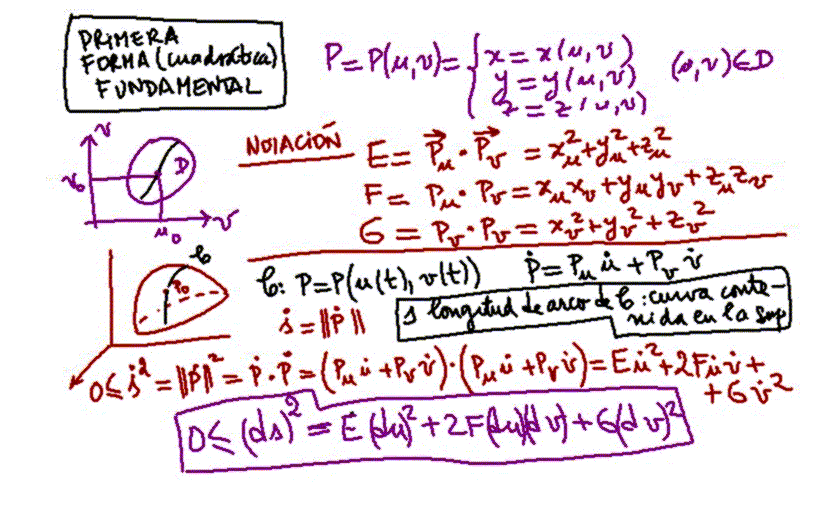 PRIMERA
FORMA (cuadrática)
FUNDAMENTAL
P = P(u,v) = { x = x(u,v)
y = y(u,v)
z = z(u,v)
(u,v) ∈ D
v
D
v₀
u₀
v
NOTACIÓN
E = P⃗ᵤ · P⃗ᵥ = xᵤ² + yᵤ² + zᵤ²
F = Pᵤ · Pᵥ = xᵤxᵥ + yᵤyᵥ + zᵤzᵥ
G = Pᵥ · Pᵥ = xᵥ² + yᵥ² + zᵥ²
C
P₀
C: P = P(u(t), v(t))
Ṗ = Pᵤ u̇ + Pᵥ v̇
ṡ = ‖Ṗ‖
s longitud de arco de C: curva conte-
nida en la sup
0 ≤ ṡ² = ‖Ṗ‖² = Ṗ · Ṗ = (Pᵤ u̇ + Pᵥ v̇) · (Pᵤ u̇ + Pᵥ v̇) = E u̇² + 2F u̇ v̇ +
+ G v̇²
0 ≤ (ds)² = E(du)² + 2F(du)(dv) + G(dv)²